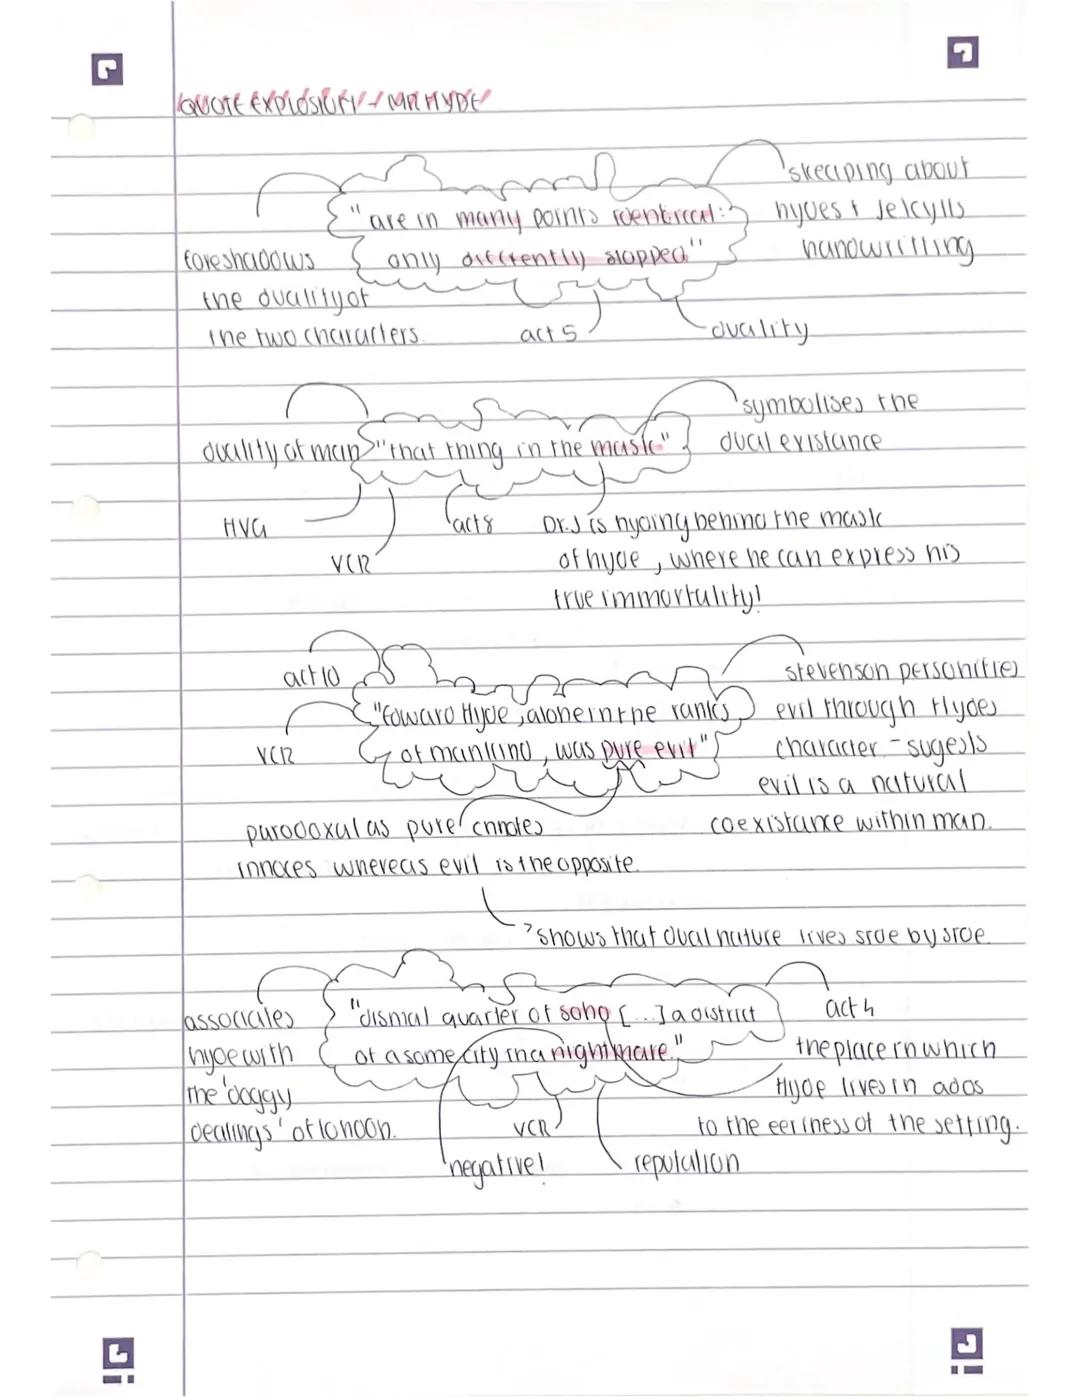 QUOTE EXPLOSION - MR HYDE
'skeaping about
hydes + Jelcylls
handwritting
"are in many points identical:
only differently slopped"
foreshadows
the duality of
the two characters.
act 5
duality
symbolises the
dual existance
duality of man
"that thing in the mask"
HVG
VCR
act 8
Dr.J is hyding behind the mask
of hyde, where he can express his
true immortality!
act 10
VCR
"Edward Hyde, alone in the ranks
of mankind, was pure evil"
stevenson personifies
evil through Hydes
character - sugests
evil is a natural
coexistance within man.
paradoxal as pure cnnotes
innoces whereas evil is the opposite.
shows that dual nature lives side by side.
associates
hyde with
the 'doggy
dealings' of london.
"dismal quarter of soho [...] a district
of a some city in a nightmare."
act 4
the place in which
Hyde lives in adds
to the eeriness of the setting.
VCR
negative!
reputation